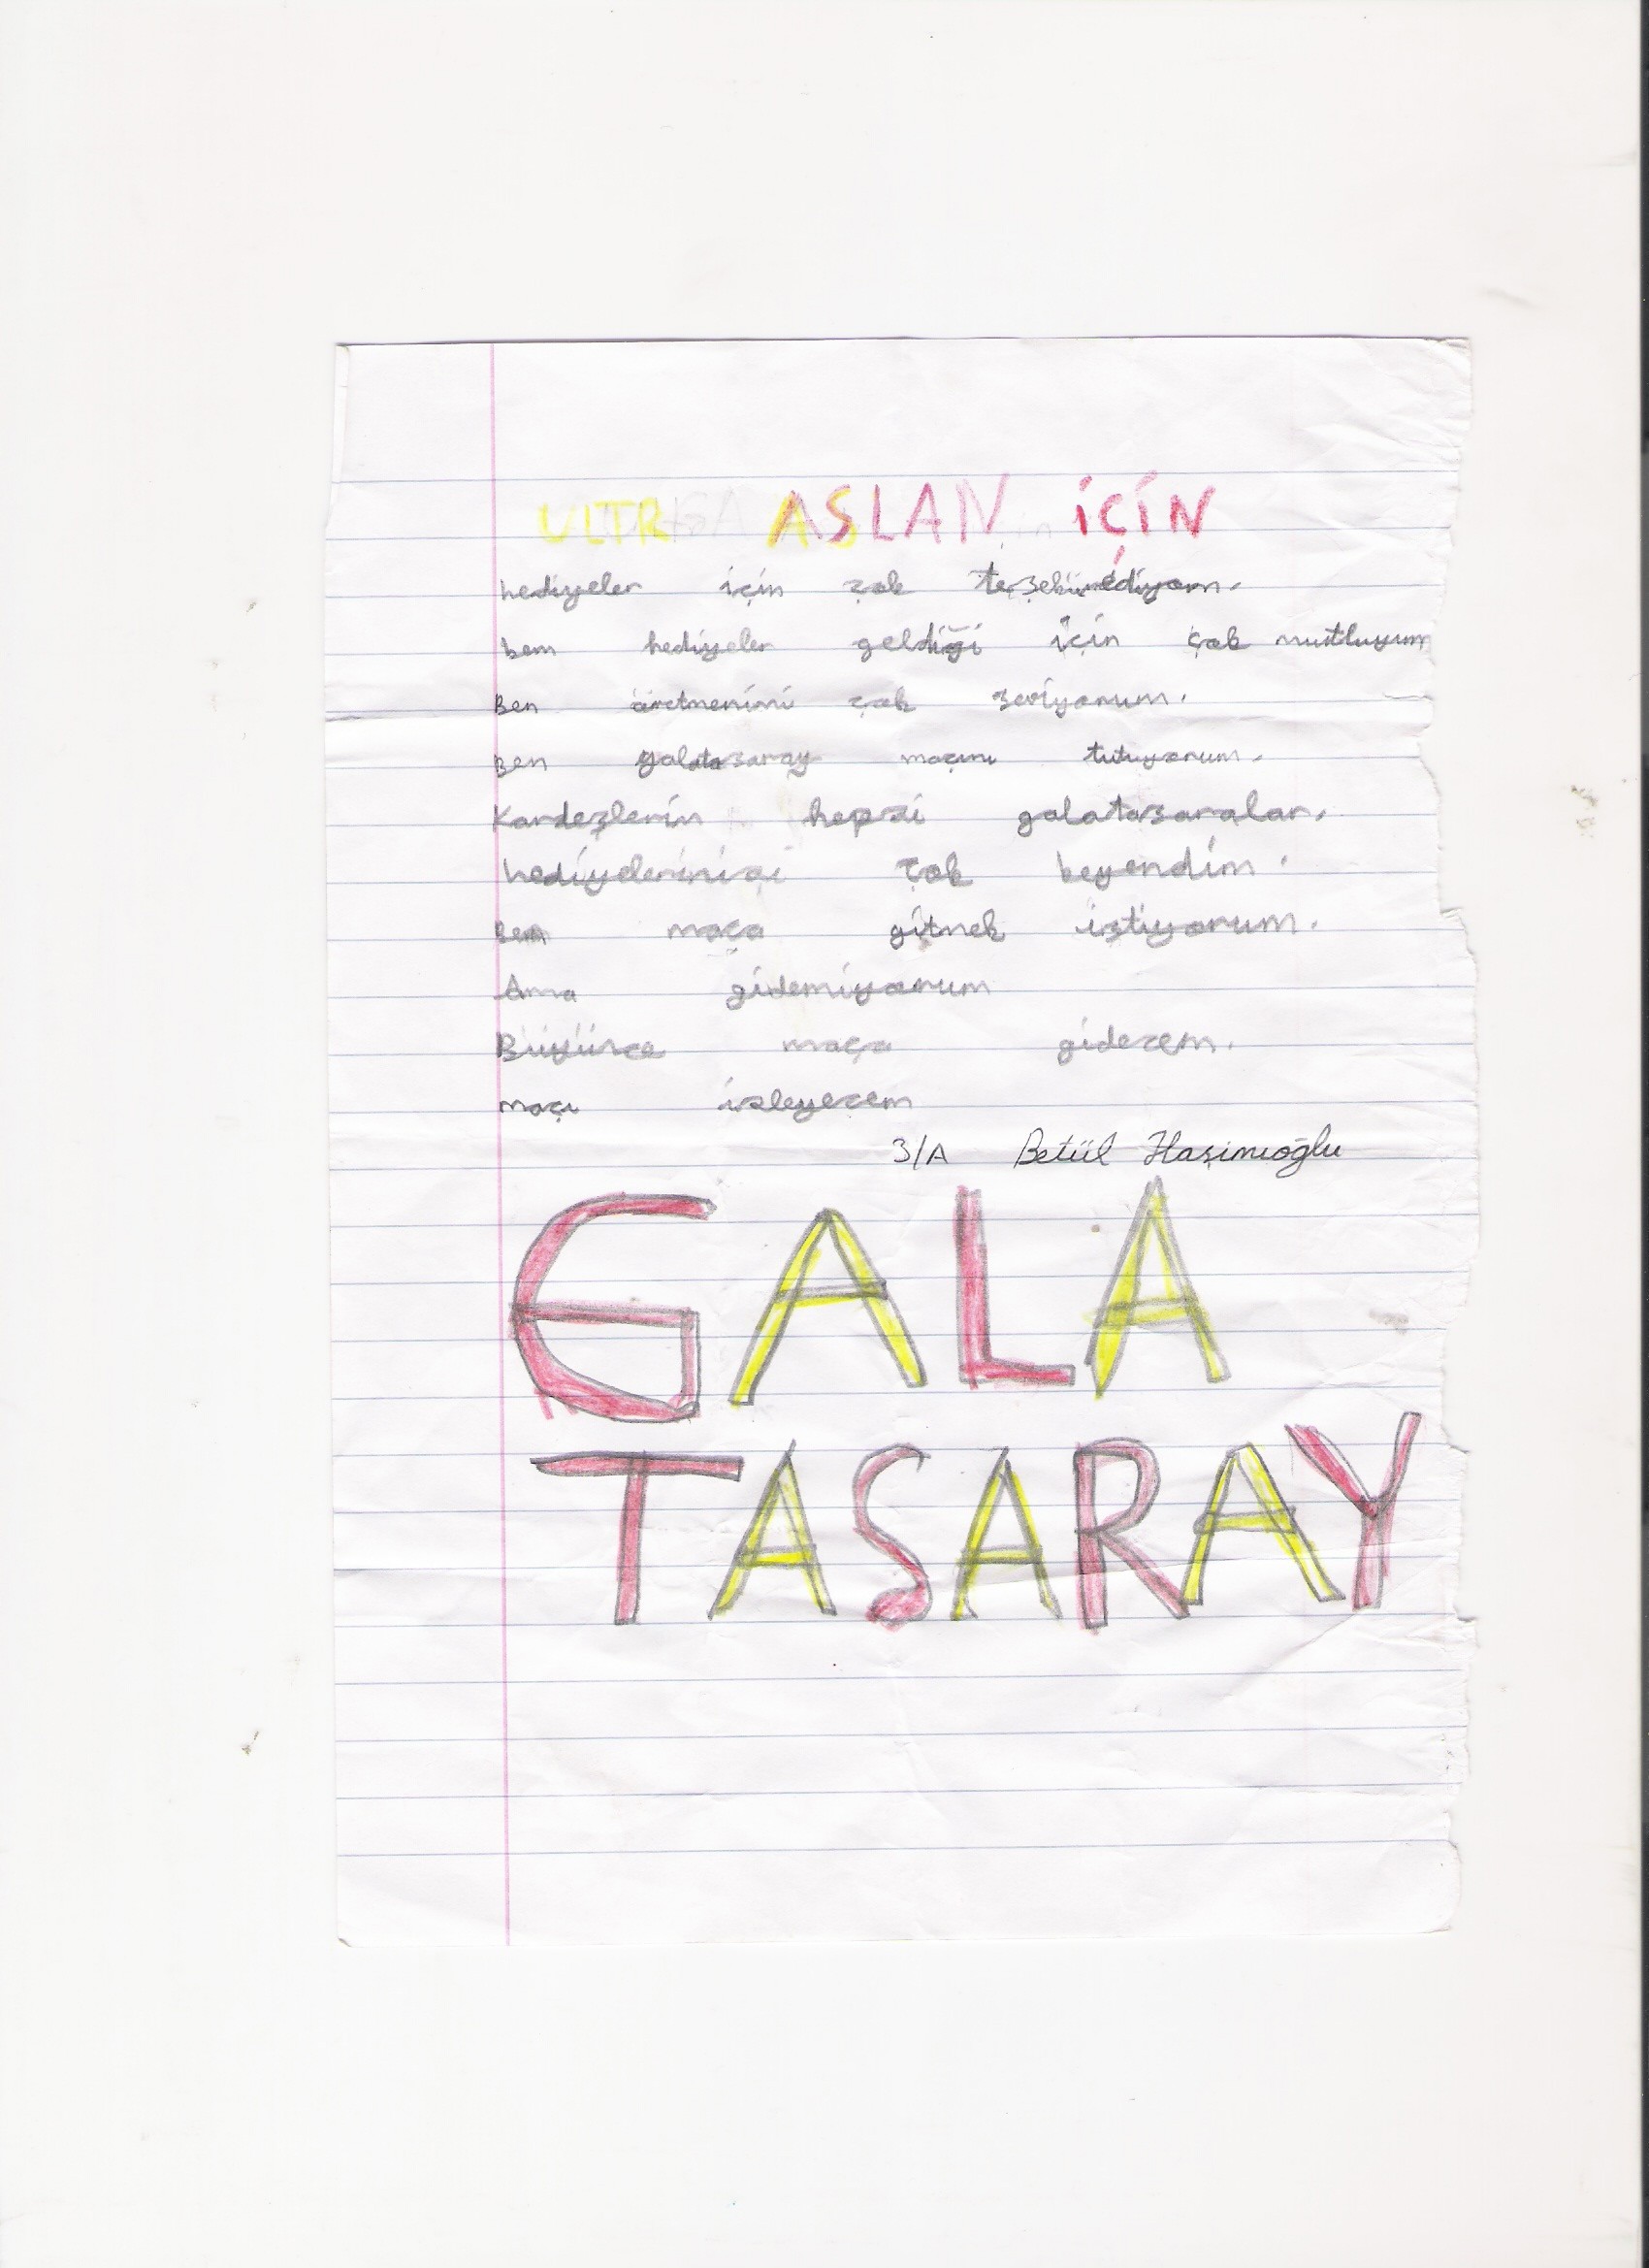 ULTRA ASLAN İÇİN
hediyeler için çok terşekürediyom.
bem hediyeler geldiği için çok mutluyum
Ben öretmenimi çok seviyorum.
Ben galatasaray maçını tutuyorum.
Kardeşlerin hepsi galatasaralar.
hediyelerinizi çok beyendim.
Ben maça gitmek istiyorum.
Ama gidemiyorum
Büyünce maça gidecem.
maçı izleyecem
3/A Betül Haşimıoğlu
GALA
TASARAY